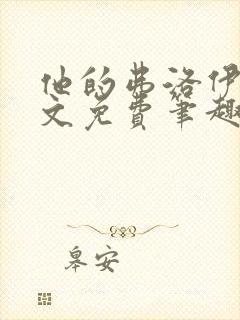 他的弗洛伊
文免费笔趣
皋安